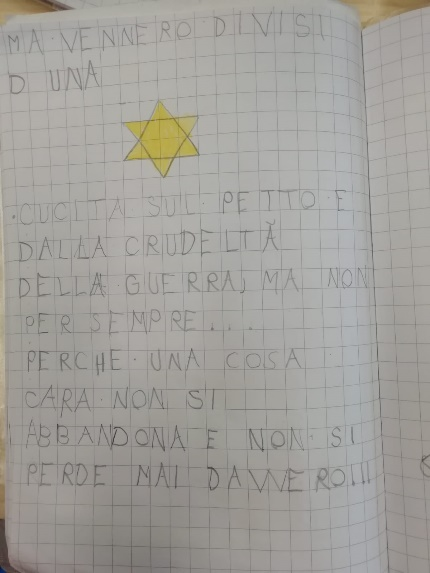 MA VENNERO DIVISI
D UNA
CUCITA SUL PETTO E
DALLA CRUDELTÀ
DELLA GUERRA, MA NON
PER SEMPRE...
PERCHE UNA COSA
CARA NON SI
ABBANDONA E NON SI
PERDE MAI DAVVERO!!!